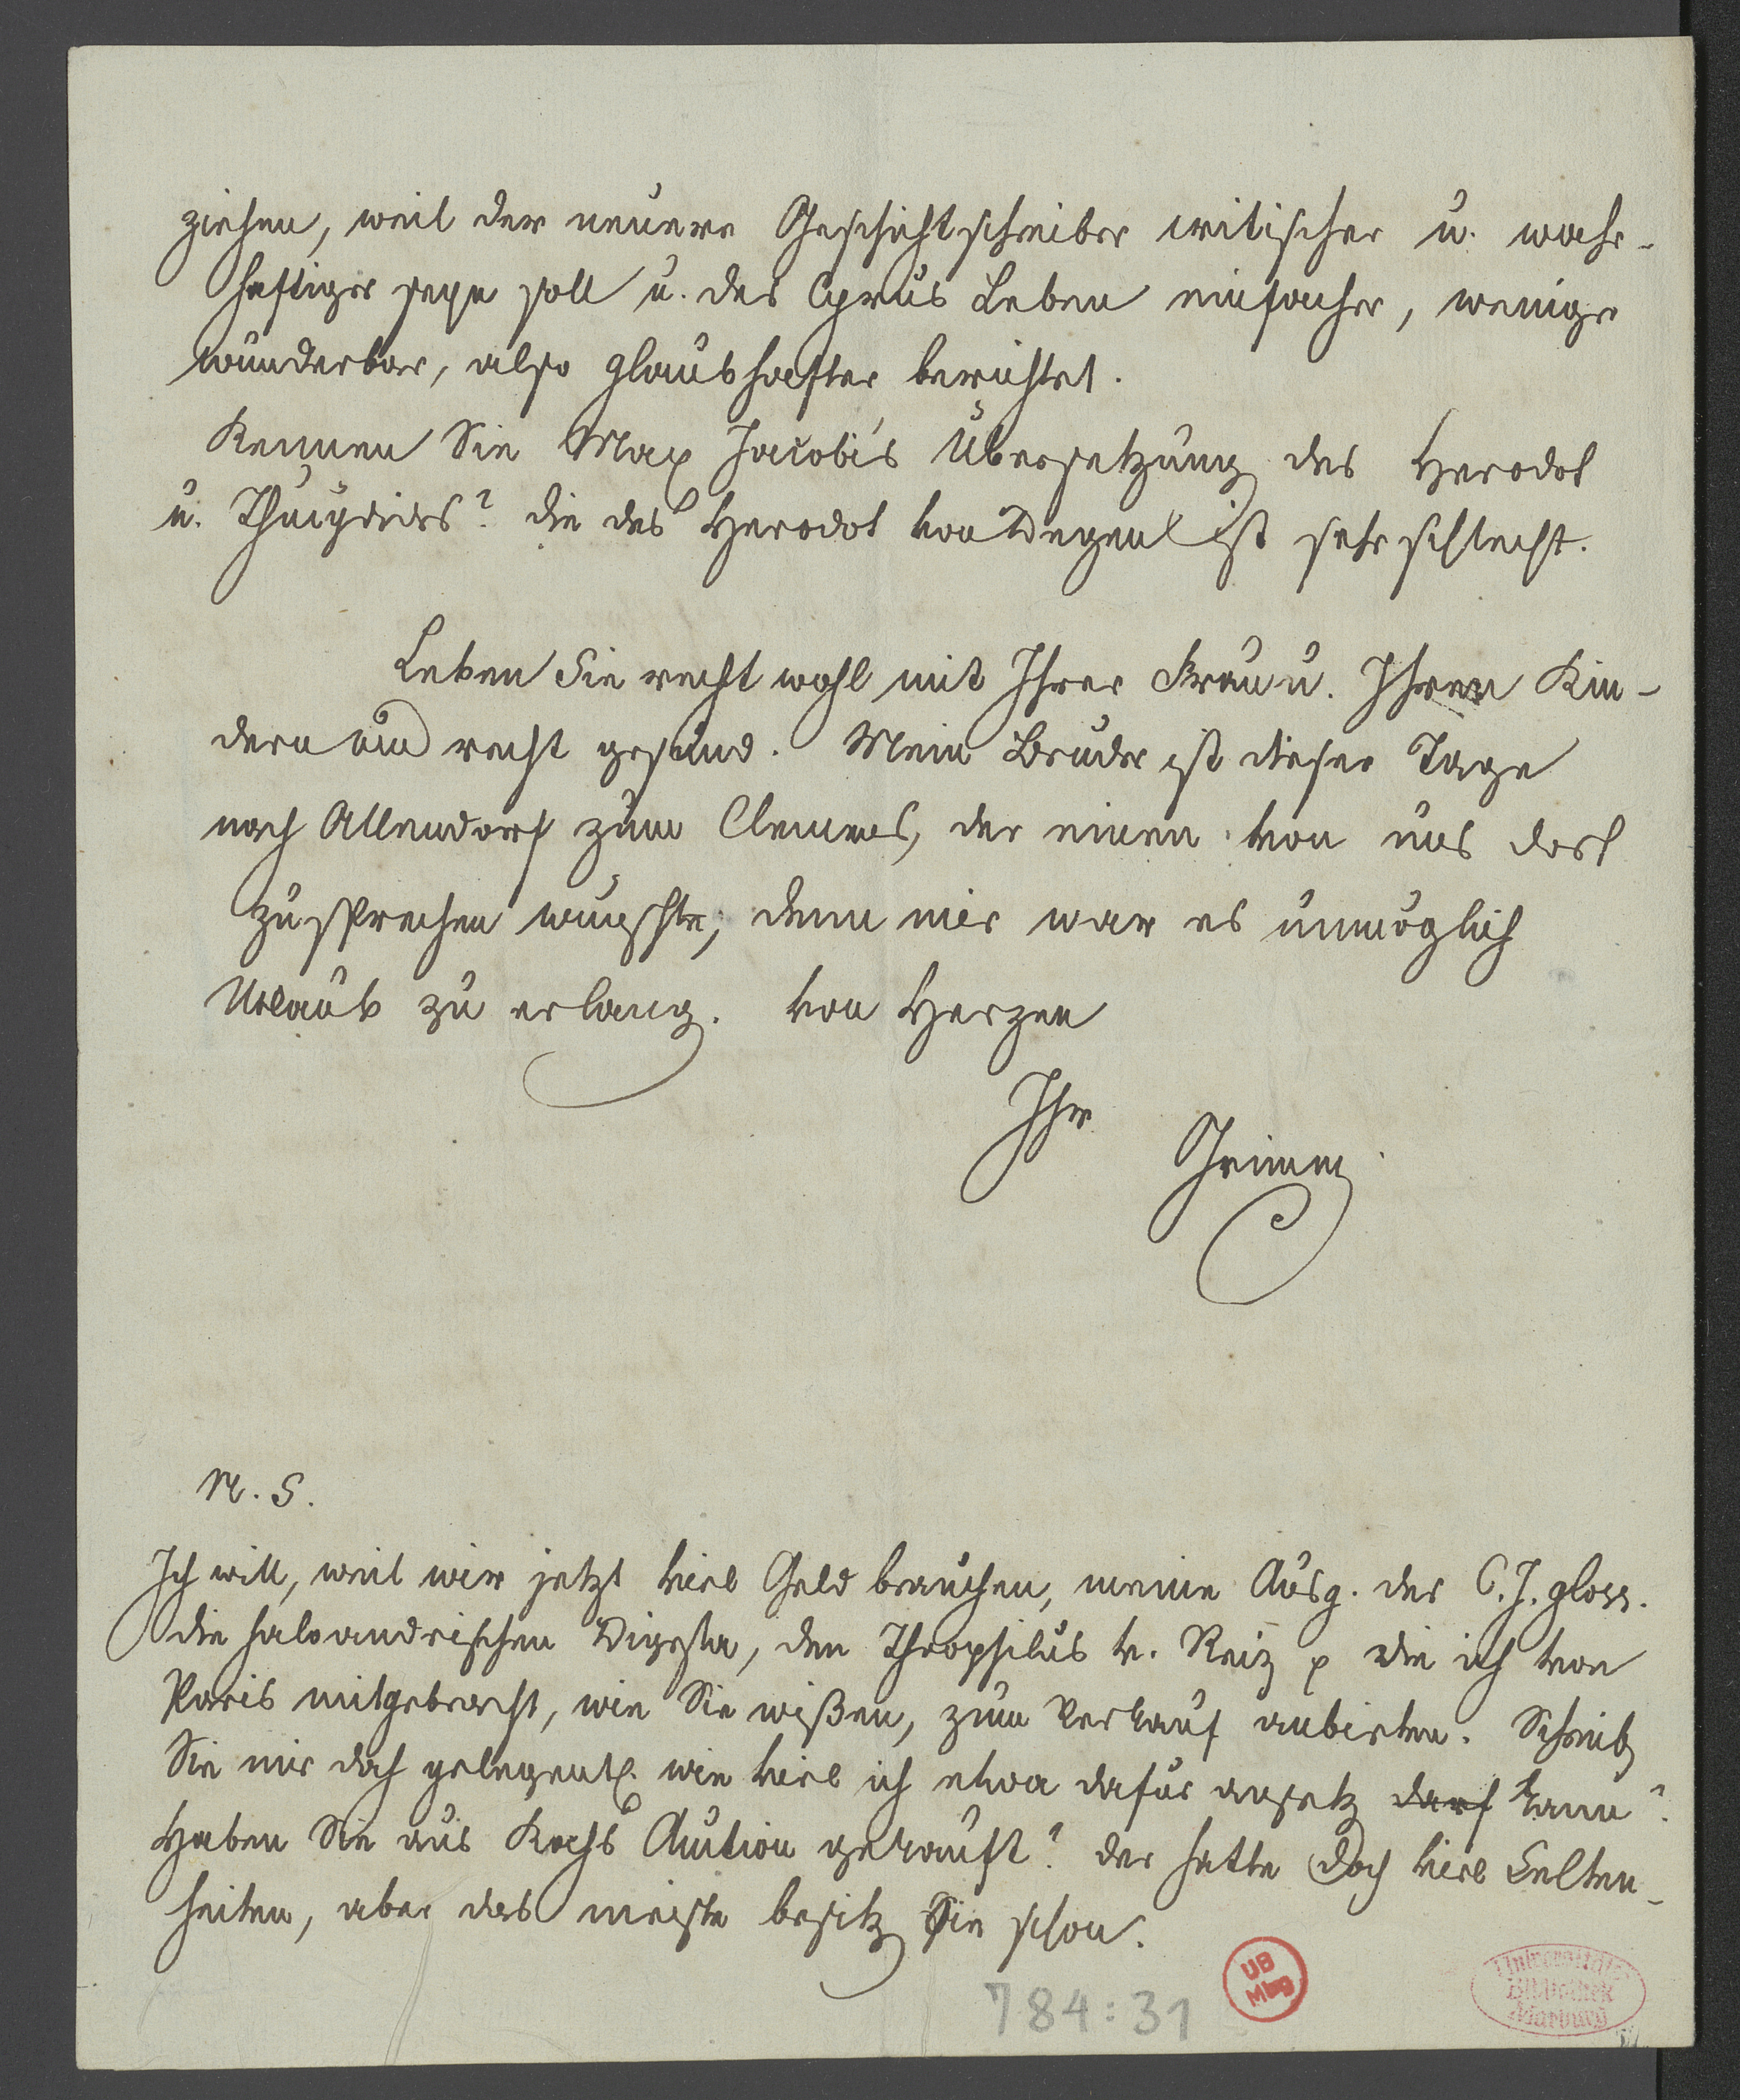 ziehen, weil der neuere Geschichtschreiber critischer u. wahr-
haftiger seyn soll u. des Cyrus Leben einfacher, weniger
wunderbar, also glaubhafter berichtet.
Kennen Sie Max Jacobi's Übersetzung des Herodot
u. Thucydides? die des Herodot von Degen ist sehr schlecht.
Leben Sie recht wohl mit Ihrer Frau u. Ihren Kin-
dern und recht gesund. Mein Bruder ist dieser Tage
nach Allendorf zum Clemens, der einen von uns dort
zu sprechen wünschte, denn mir war es unmöglich
Urlaub zu erlang. von Herzen
Ihr
Grimm
N. S.
Ich will, weil wir jetzt viel Geld brauchen, meine Ausg. des C. J. gloss.
die haloandrischen Digesta, den Theophilus v. Reiz p die ich von
Paris mitgebracht, wie Sie wißen, zum Verkauf anbieten. Schreib
Sie mir doch gelegentl. wie viel ich etwa dafür ansetz darf kann?
Haben Sie aus Kochs Auction gekauft? der hatte doch viel Selten-
heiten, aber das meiste besitz Sie schon.
784:31
UB
Mbg
Universitäts
Bibliothek
Marburg